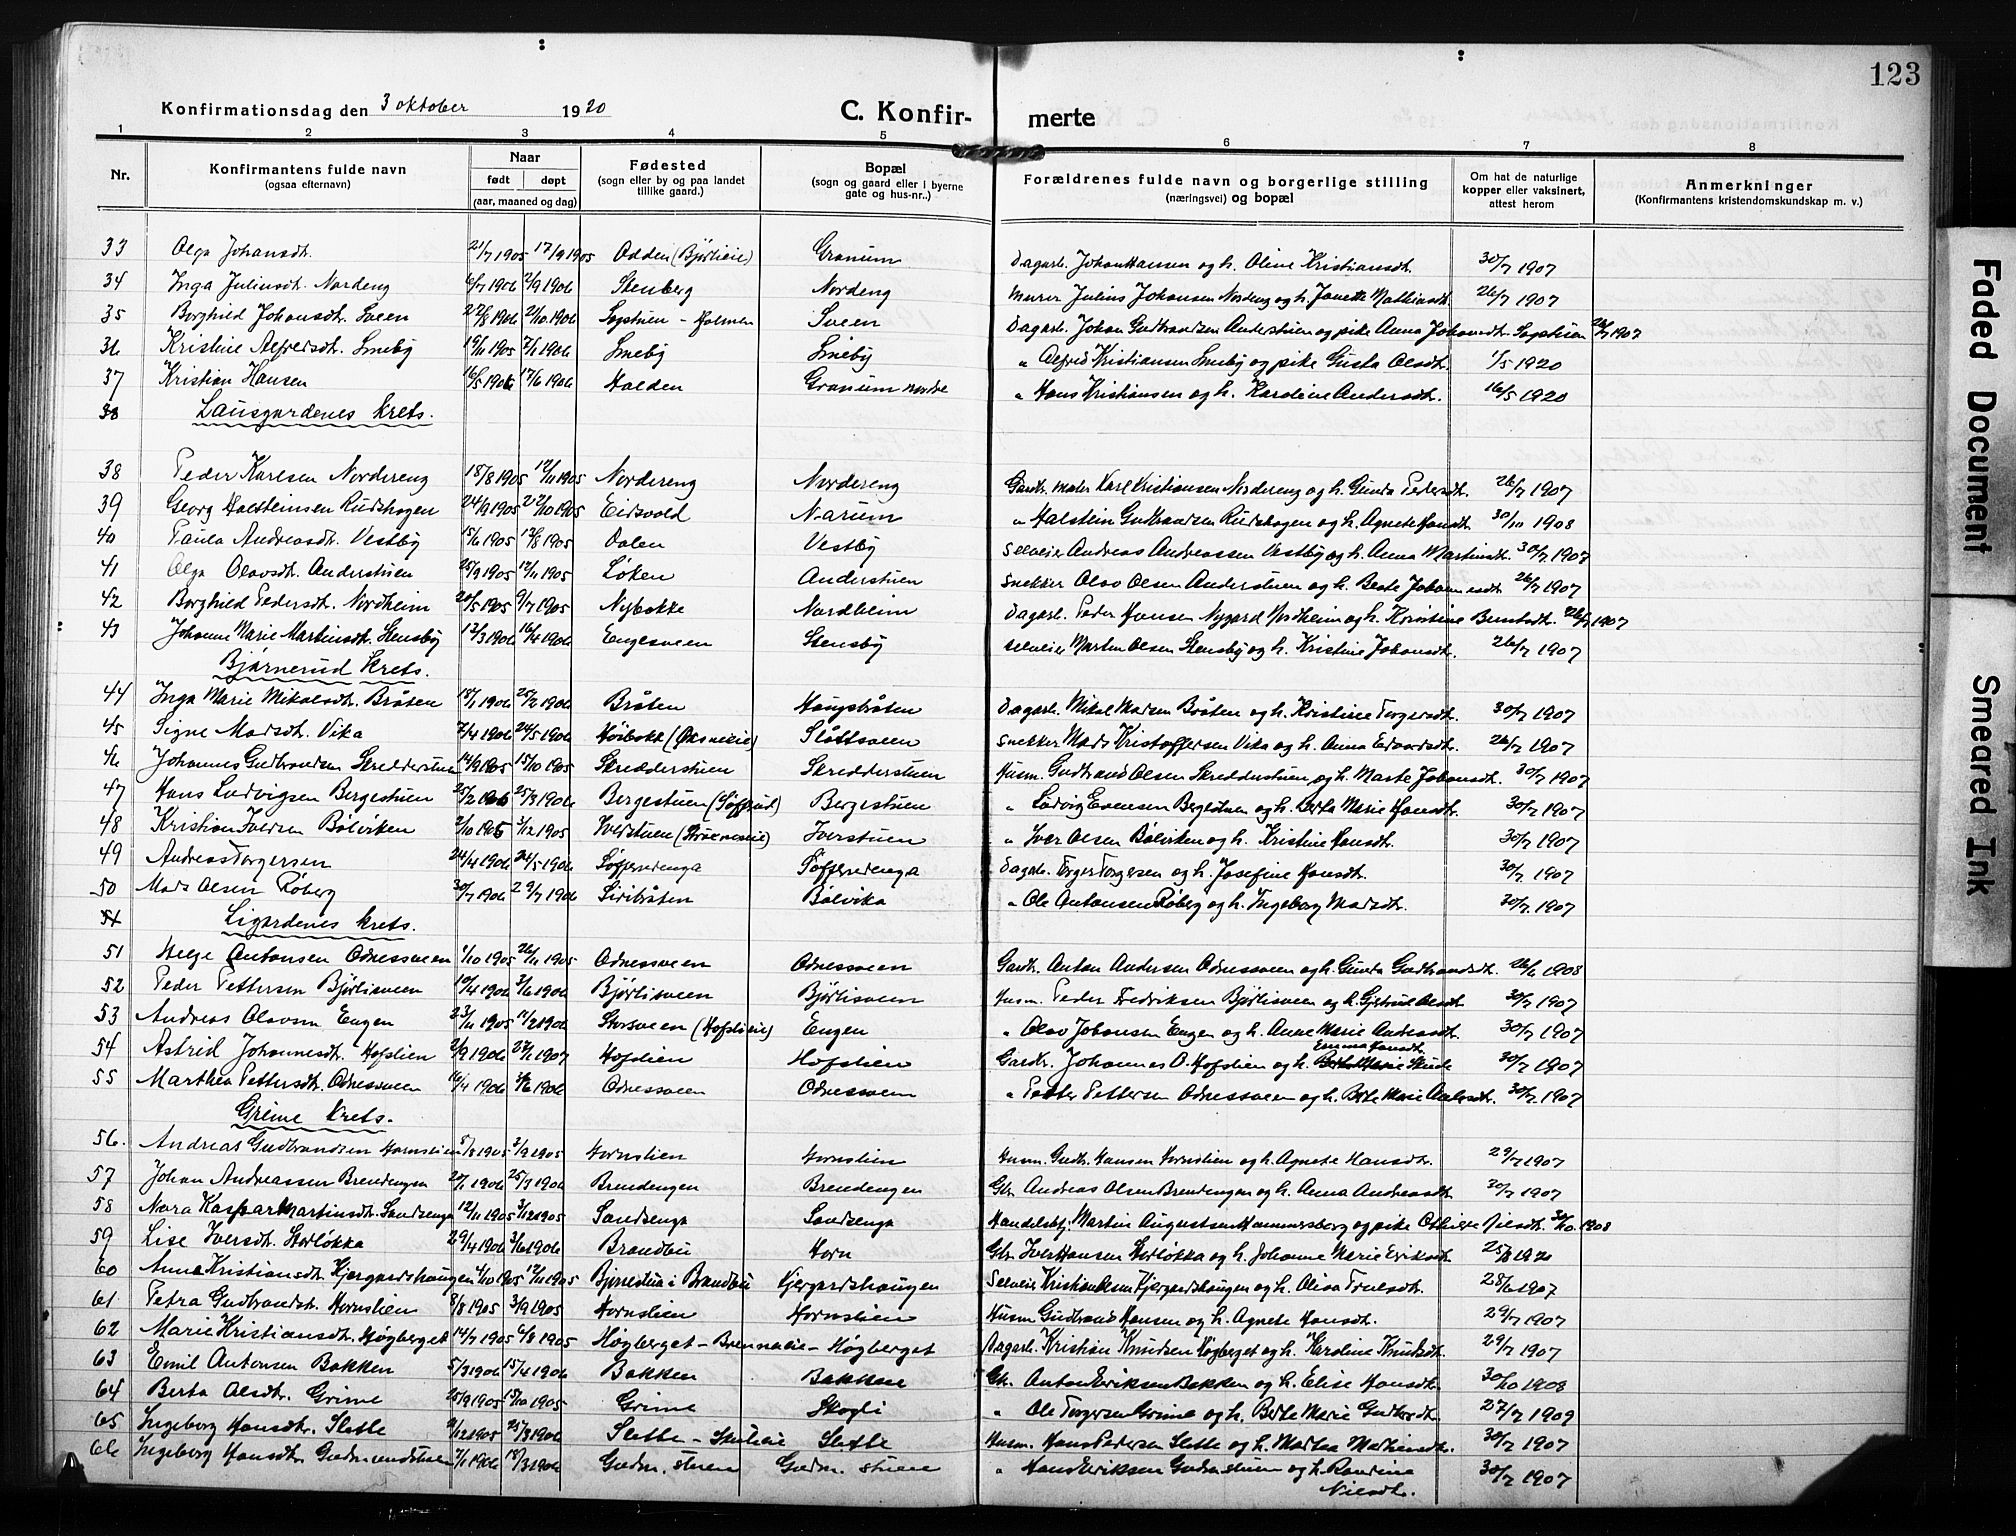 123
Konfirmationsdag den 3 oktober 1920
C. Konfirmerte
1 2 3 4 5 6 7 8
Nr. | Konfirmantens fulde navn (ogsaa efternavn) | Naar født døpt (aar, maaned og dag) | Fødested (sogn eller by og paa landet tillike gaard.) | Bopæl (sogn og gaard eller i byerne gate og hus-nr..) | Forældrenes fulde navn og borgerlige stilling (næringsvei) og bopæl | Om hat de naturlige kopper eller vaksinert, attest herom | Anmerkninger (Konfirmantens kristendomskundskap m. v.)
33 Olga Johansdt. 21/7 1905 17/9 1905 Odden (Bjørlieie) Granum Dagarb. Johan Hansen og h. Oline Kristiansdt. 30/7 1907
34 Inga Juliusdt. Nordeng 6/7 1906 2/9 1906 Stenberg Nordeng Murer Julius Johansen Nordeng og h. Janette Mathiasdt. 26/7 1907
35 Borghild Johansdt. Sveen 22/8 1906 21/10 1906 Sopstuen - Holmen Sveen Dagarb. Johan Gudbrandsen Anderstuen og pike Anna Johansdt. Sopstuen 26/7 1907
36 Kristine Alfredsdt. Smeby 19/11 1905 7/1 1906 Smeby Smeby " Alfred Kristiansen Smeby og pike Gusta Olsdt. 1/5 1920
37 Kristian Hansen 16/5 1906 17/6 1906 Halden Granum nordre " Hans Kristiansen og h. Karoline Andersdt. 16/5 1920
38 Lausgardenes krets.
38 Peder Karlsen Nordereng 18/8 1905 12/11 1905 Nordereng Nordereng Gardbr. maler Karl Kristiansen Nordereng og h. Gunda Pedersdt. 26/7 1907
39 Georg Halsteinsen Rudshagen 24/9 1905 22/10 1905 Eidsvold Narum " Halstein Gudbrandsen Rudshagen og h. Agnete Hansdt. 30/10 1908
40 Paula Andreasdt. Vestby 15/6 1905 13/8 1905 Dalen Vestby Selveier Andreas Andreassen Vestby og h. Anna Martinsdt. 30/7 1907
41 Olga Olavsdt. Anderstuen 25/9 1905 12/11 1905 Løken Anderstuen Snekker Olav Olsen Anderstuen og h. Beate Johannesdt. 26/7 1907
42 Borghild Pedersdt. Nordheim 20/5 1905 9/7 1905 Nybakke Nordheim Dagarb. Peder Hansen Nygard Nordheim og h. Kristine Berntsdt. 26/7 1907
43 Johanne Marie Martinsdt. Stensby 12/3 1906 16/4 1906 Engesveen Stensby Selveier Martin Olsen Stensby og h. Kristine Johansdt. 26/7 1907
Bjørnerud krets.
44 Inga Marie Mikalsdt. Bråten 18/1 1906 25/2 1906 Bråten Haugsbråten Dagarb. Mikal Madsen Bråten og h. Kristine Torgersdt. 30/7 1907
45 Signe Madsdt. Vika 7/4 1906 24/5 1906 Høibakk (Øksneeie) Slåttsveen Snekker Mads Kristoffersen Vika og h. Anna Edvardsdt. 26/7 1907
46 Johannes Gudbrandsen Skredderstuen 14/9 1905 15/10 1905 Skrædderstuen Skredderstuen Husm. Gudbrand Olsen Skredderstuen og h. Marte Johansdt. 30/7 1907
47 Hans Ludvigsen Bergestuen 25/2 1906 25/3 1906 Bergestuen (Tøfsrud) Bergestuen " Ludvig Evensen Bergestuen og h. Berta Marie Hansdt. 30/7 1907
48 Kristian Iversen Bølviken 2/10 1905 3/12 1905 Iverstuen Iverstuen " Iver Olsen Bølviken og h. Kristine Hansdt. 30/7 1907
49 Andreas Torgersen 24/4 1906 24/5 1906 Tøfsrudenga Tøfsrudenga Dagarb. Torger Torgersen og h. Josefine Hansdt. 30/7 1907
50 Mads Olsen Røberg 30/7 1906 29/7 1906 Siribråten Bølvika " Ole Antonsen Røberg og h. Ingeborg Madsdt. 30/7 1907
51 Ligardenes krets.
51 Helge Antonsen Odnessveen 1/10 1905 26/11 1905 Odnessveen Odnessveen Gardbr. Anton Andersen Odnessveen og h. Gunda Gudbrandsdt. 26/6 1908
52 Peder Pettersen Bjørlisveen 10/4 1906 3/6 1906 Bjørlisveen Bjørlisveen Husm. Peder Fredriksen Bjørlisveen og h. Gjetrud Olsdt. 30/7 1907
53 Andreas Olavsen Engen 23/11 1905 11/2 1906 Storsveen (Hofslieie) Engen " Olav Johansen Engen og h. Anne Marie Andreasdt. 30/7 1907
54 Astrid Johannesdt. Hofslien 2/9 1906 27/1 1907 Hofslien Hofslien Gardbr. Johannes O. Hofslien og h. Emma Hansdt. 30/7 1907
55 Marthea Pettersdt. Odnessveen 16/4 1906 3/6 1906 Odnessveen Odnessveen " Petter Pettersen Odnessveen og h. Berte Marie Andersdt. 30/7 1907
Grime krets.
56. Andreas Gudbrandsen Hornslien 5/8 1905 3/9 1905 Hornslien Hornslien Husm. Gudbr. Hansen Hornslien og h. Agnete Hansdt. 29/7 1907
57 Johan Andreassen Brendengen 20/1 1906 25/7 1906 Brendengen Brendengen Gbr. Andreas Olsen Brendengen og h. Anna Andreasdt. 30/7 1907
58 Nora Kaspara Martinsdt. Sandsenga 12/11 1905 3/12 1905 Sandsenga Sandsenga Handelsbtj. Martin Augustsen Hammersborg og pike Othilie Nilsdt. 30/10 1908
59 Lise Iversdt. Storløkka 29/4 1906 3/6 1906 Brandbu Horn Gbr. Iver Hansen Storløkka og h. Johanne Marie Eriksdt. 25/8 1920
60 Anna Kristiansdt. Kjergardshaugen 4/10 1905 12/11 1905 Bjerrestua i Brandbu Kjergardshaugen Selveier Kristian Olsen Kjergardshaugen og h. Olina Truelsdt. 28/6 1907
61 Petra Gudbrandsdt. Hornslien 8/8 1905 3/9 1905 Hornslien Hornslien Husm. Gudbrand Hansen og h. Agnete Hansdt. 29/7 1907
62 Marie Kristiansdt. Høgberget 14/7 1905 6/8 1905 Høgberget - Brennaeie - Høgberget Dagarb. Kristian Knudsen Høgberget og h. Karoline Knudsdt. 29/7 1907
63 Emil Antonsen Bakken 5/3 1906 15/4 1906 Bakken Bakken Gbr. Anton Eriksen Bakken og h. Elise Hansdt. 30/10 1908
64 Berta Olsdt. Grime 25/9 1905 15/10 1905 Grime Skogli " Ole Torgersen Grime og h. Berte Marie Gudbrdt. 27/7 1909
65 Ingeborg Hansdt. Slette 21/12 1905 25/3 1906 Slette - Skulieie Slette Husm. Hans Pedersen Slette og h. Martea Mathiasdt. 30/7 1907
66 Ingeborg Hansdt. Gudmundstuen 7/1 1906 18/3 1906 Gudm. stuen Gudm. stuen " Hans Eriksen Gudm.stuen og h. Randine Nilsdt. 30/7 1907
Faded Document
Smeared Ink